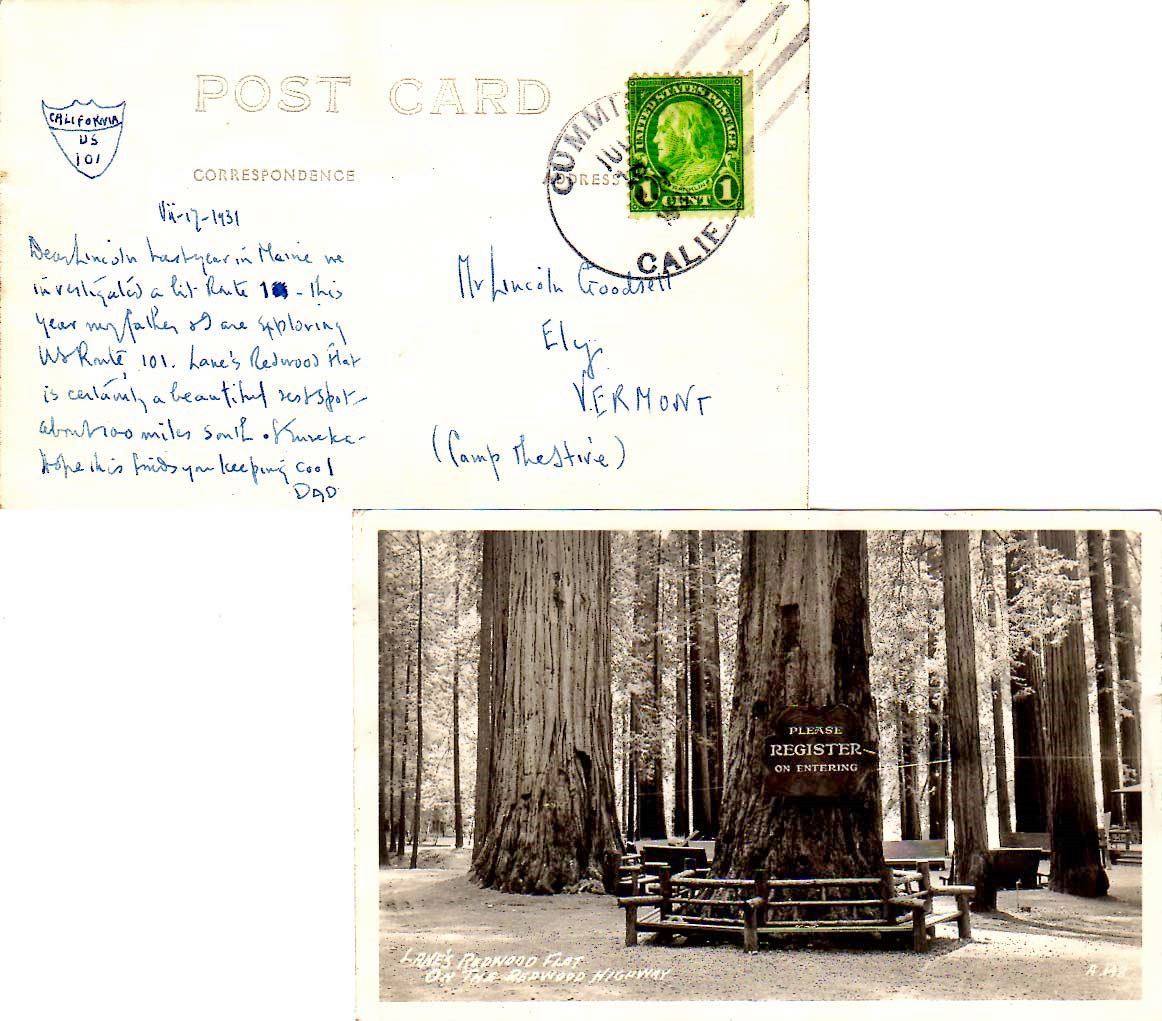 POST CARD
CALIFORNIA
US
101
CORRESPONDENCE
CUMMI
CALIF.
UNITED STATES POSTAGE
FRANKLIN
1 CENT 1
VII-17-1931
Dear Lincoln Last year in Maine we
investigated a bit Route 1 - this
year my father & I are exploring
US Route 101. Lane's Redwood Flat
is certainly a beautiful rest spot -
about 100 miles south of Eureka -
Hope this finds you keeping cool
DAD
Mr Lincoln Goodsell
Ely
VERMONT
(Camp
PLEASE
REGISTER
ON ENTERING
LANE'S REDWOOD FLAT
ON THE REDWOOD HIGHWAY